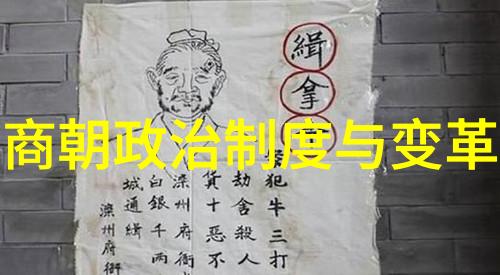 商朝政治制度与变革
緝拿
犯牛三打
劫舍殺人
貨十惡不
滦州府衙
白銀千两
城通緝
滦州府衙